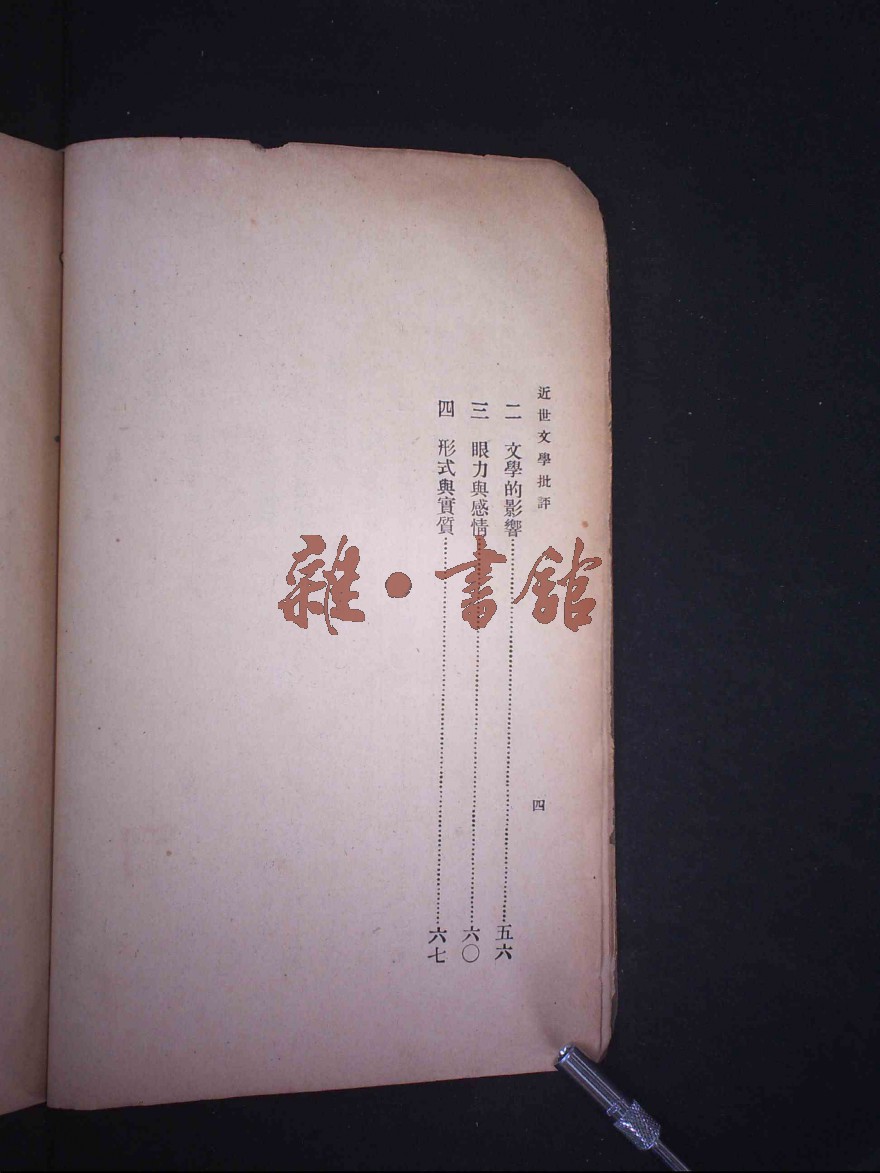 近世文學批評
四
二 文學的影響……五六
三 眼力與感情……六〇
四 形式與實質……六七
雜·書舘